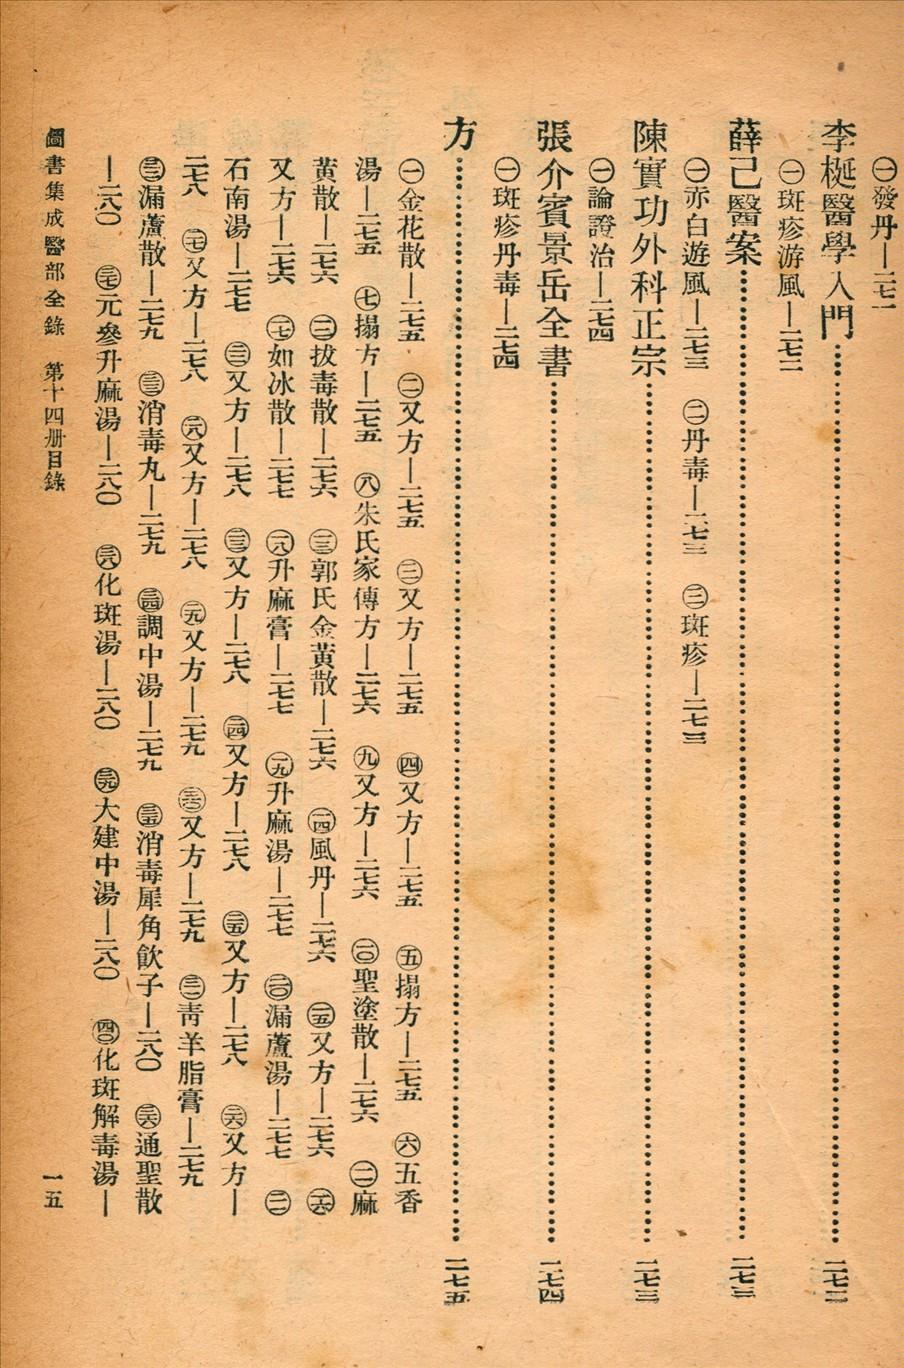 ㊀發丹—二七一
李梴醫學入門……二七二
㊀斑疹游風—二七二
薛己醫案……二七三
㊀赤白遊風—二七三 ㊁丹毒—二七三 ㊂斑疹—二七三
陳實功外科正宗……二七三
㊀論證治—二七四
張介賓景岳全書……二七四
㊀斑疹丹毒—二七四
方……二七五
㊀金花散—二七五 ㊁又方—二七五 ㊂又方—二七五 ㊃又方—二七五 ㊄搨方—二七五 ㊅五香
湯—二七五 ㊆搨方—二七五 ㊇朱氏家傳方—二七六 ㊈又方—二七六 ㊉聖塗散—二七六 ⑪麻
黃散—二七六 ⑫拔毒散—二七六 ⑬郭氏金黃散—二七六 ⑭風丹—二七六 ⑮又方—二七六 ⑯
又方—二七六 ⑰如冰散—二七七 ⑱升麻膏—二七七 ⑲升麻湯—二七七 ⑳漏蘆湯—二七七 ㉑
石南湯—二七七 ㉒又方—二七八 ㉓又方—二七八 ㉔又方—二七八 ㉕又方—二七八 ㉖又方—
二七八 ㉗又方—二七八 ㉘又方—二七八 ㉙又方—二七九 ㉚又方—二七九 ㉛青羊脂膏—二七九
㉜漏蘆散—二七九 ㉝消毒丸—二七九 ㉞調中湯—二七九 ㉟消毒犀角飲子—二八〇 ㊱通聖散
—二八〇 ㊲元參升麻湯—二八〇 ㊳化斑湯—二八〇 ㊴大建中湯—二八〇 ㊵化斑解毒湯—
圖書集成醫部全錄 第十四册目錄
一五